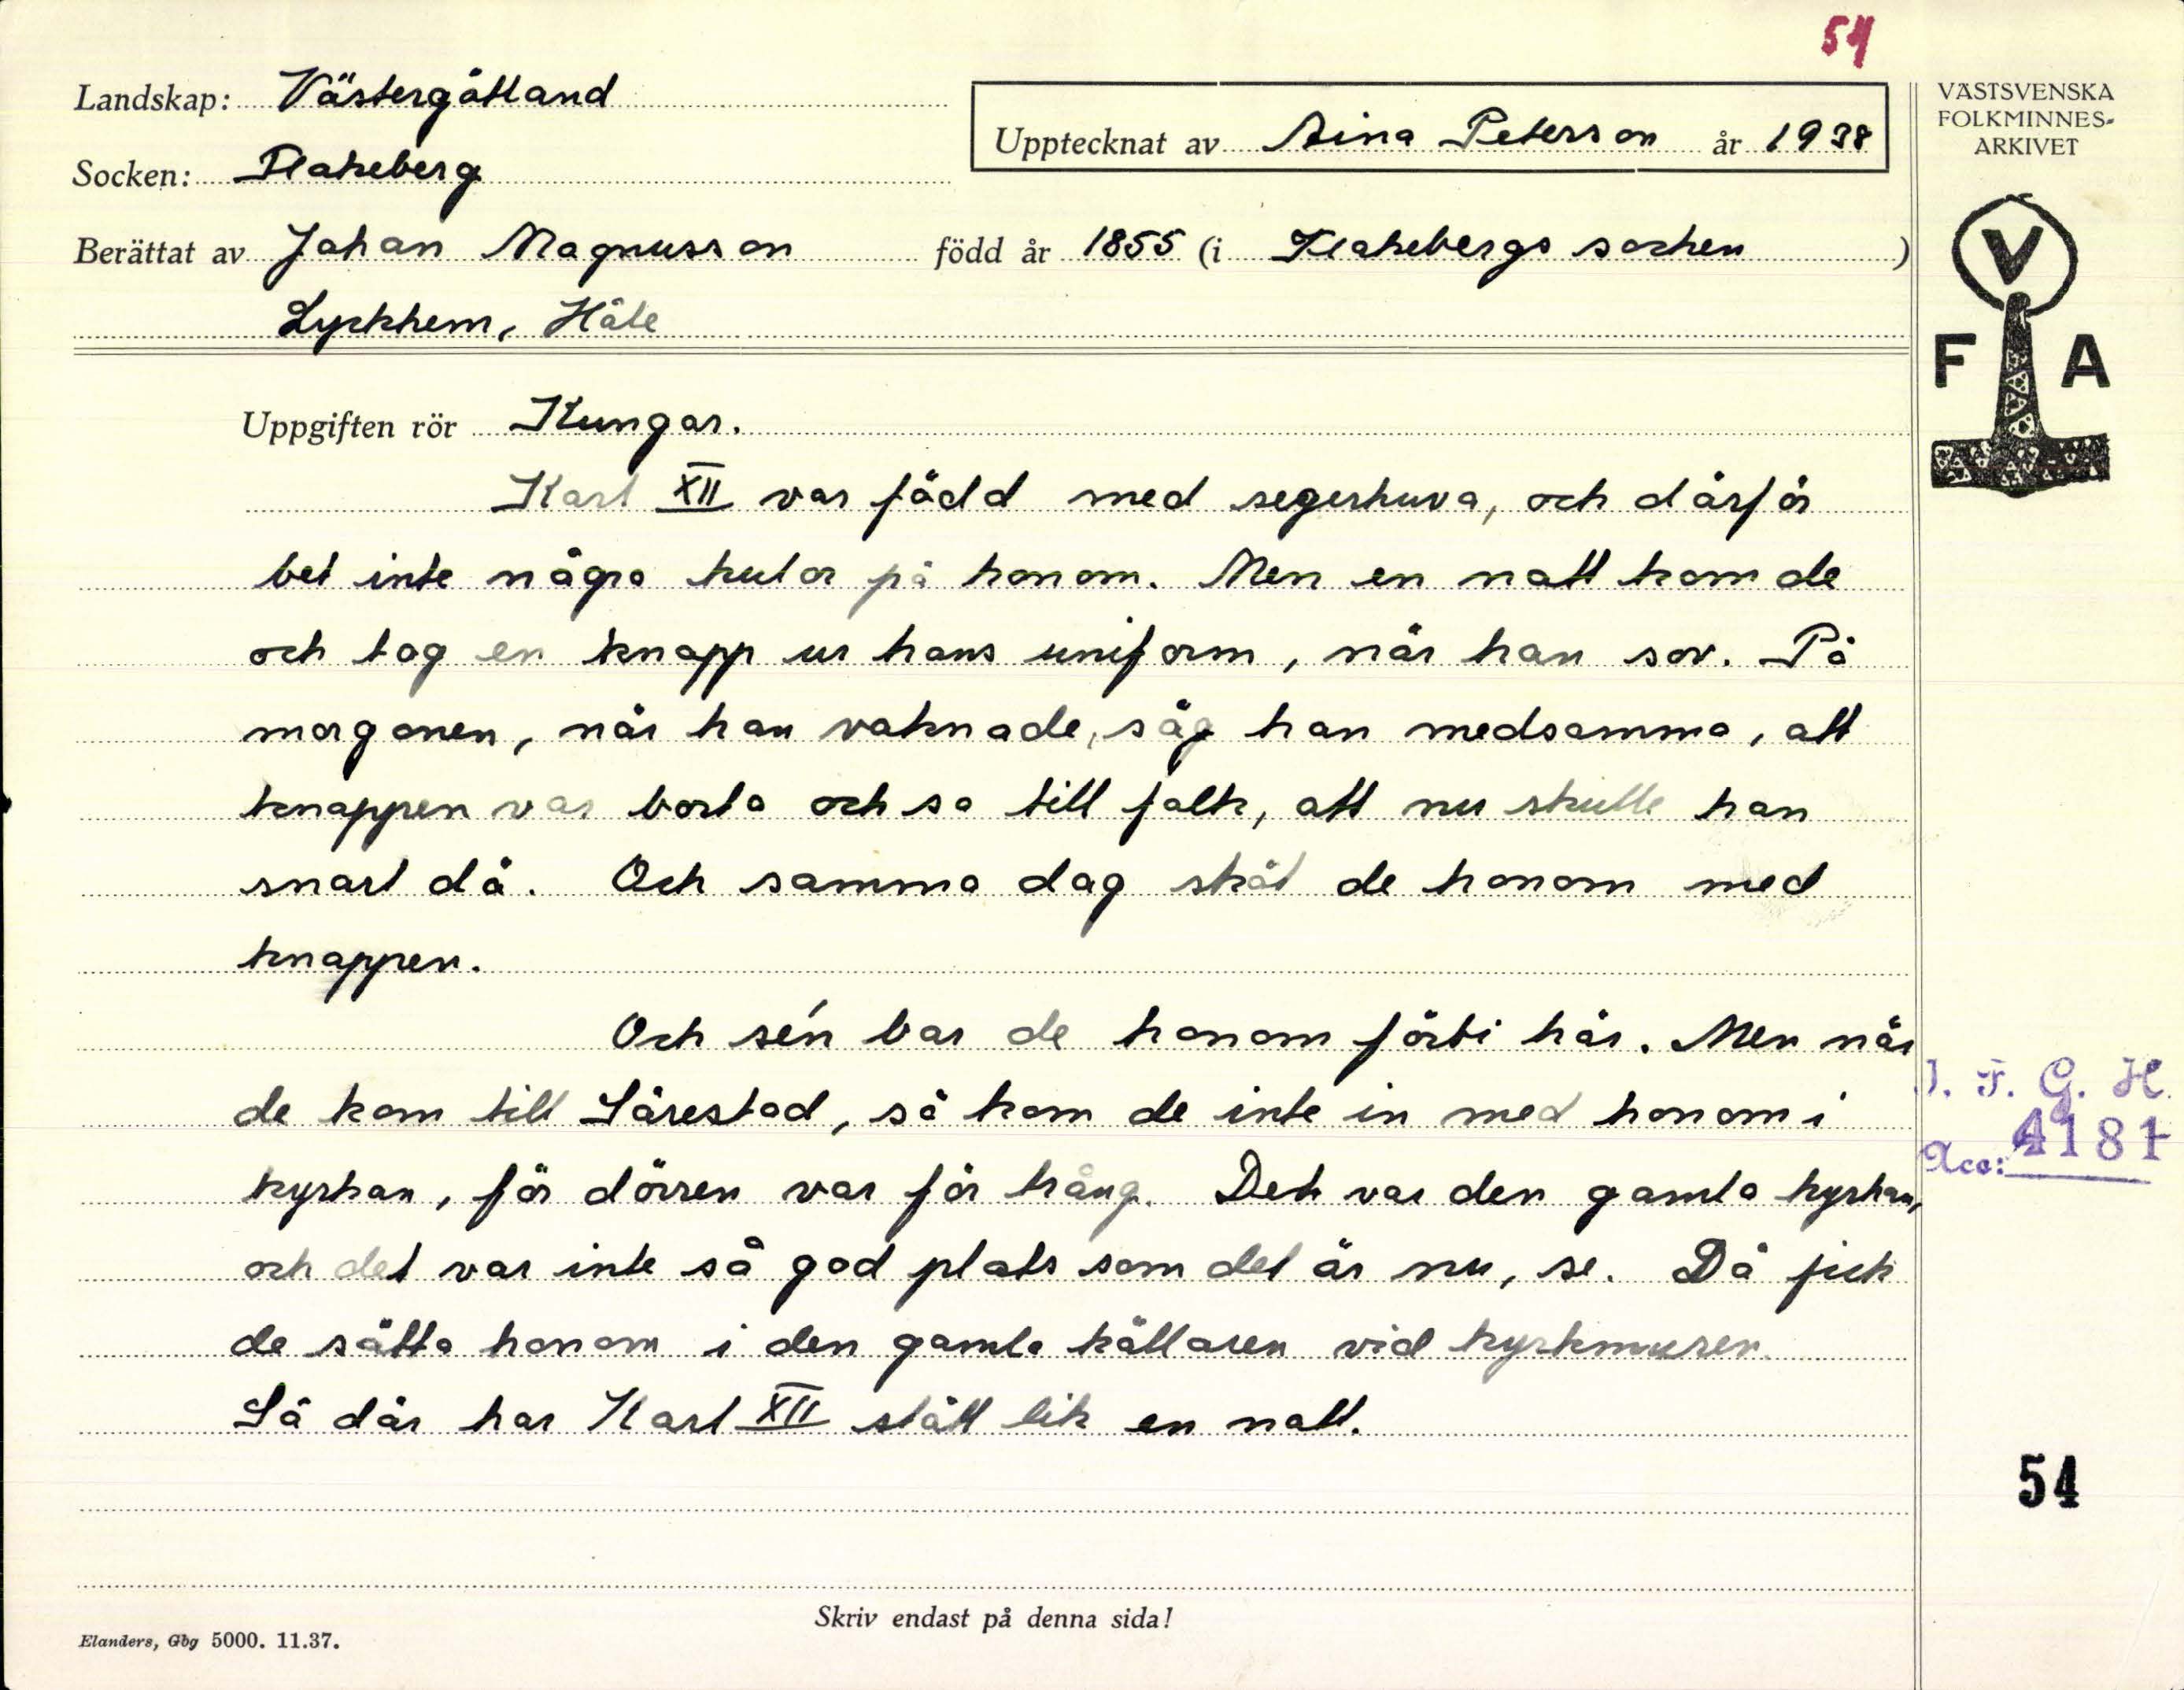 54
Landskap: Västergötland
Upptecknat av Aina Peterson år 1938
VÄSTSVENSKA
FOLKMINNES-
ARKIVET
Socken: Flakeberg
Berättat av Johan Magnusson född år 1855 (i Flakebergs socken)
Lyckhem, Häle
V
F A
Uppgiften rör Kungar.
Karl XII var född med segerhuva, och därför
bet inte några kulor på honom. Men en natt kom de
och tog en knapp ur hans uniform, när han sov. På
morgonen, när han vaknade, såg han medsamma, att
knappen var borta och sa till folk, att nu skulle han
snart dö. Och samma dag sköt de honom med
knappen.
Och sén bar de honom förbi här. Men när
de kom till Särestad, så kom de inte in med honom i
kyrkan, för dörren var för trång. Det var den gamla kyrkan,
och det var inte så god plats som det är nu, se. Då fick
de sätta honom i den gamla källaren vid kyrkmuren.
Så där har Karl XII stått lik en natt.
I. F. G. H.
Acc: 4181
54
Skriv endast på denna sida!
Elanders, Gbg 5000. 11.37.